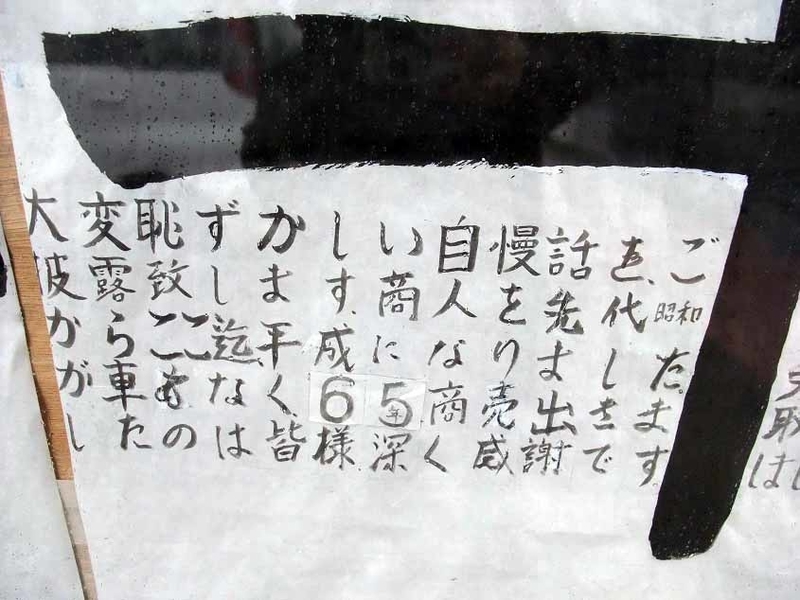 大変恥ずかしい自慢話をご
披露致します。商人を先代昭和
からここ迄平成になりました。
が車もなく65年商売出きま
したのは皆様深く感謝です